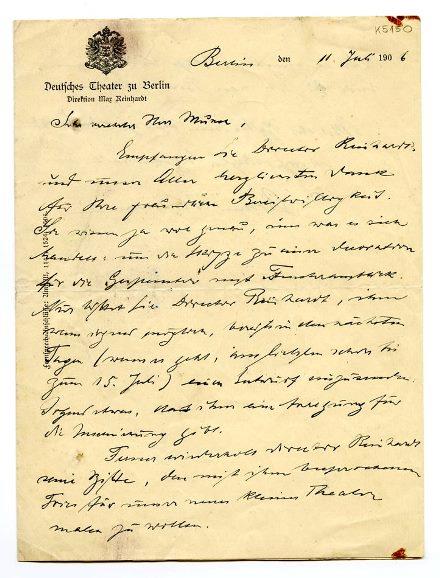 K5150
Berlin den 11 Juli 1906
Deutsches Theater zu Berlin
Direktion Max Reinhardt
Sehr verehrter Herr Munch,
Empfangen Sie Director Reinhardts
und unser Aller herzlichsten Dank
für Ihre freundliche Bereitwilligkeit.
Sie wissen ja wol genau, um was es sich
handelt: um die Skizze zu einer Decoration
für die Gespenster
Nun bittet Sie Director Reinhardt, ihm
wenn irgend möglich, in den nächsten
Tagen (wenn es geht, schon bis
zum 15. Juli) einen Entwurf einzusenden.
Irgend etwas, das ihm eine Anregung für
die Inscenierung gibt.
Ferner wiederholt Director Reinhardt
seine Bitte, den mit ihm besprochenen
Fries für unser neues kleines Theater
malen zu wollen.